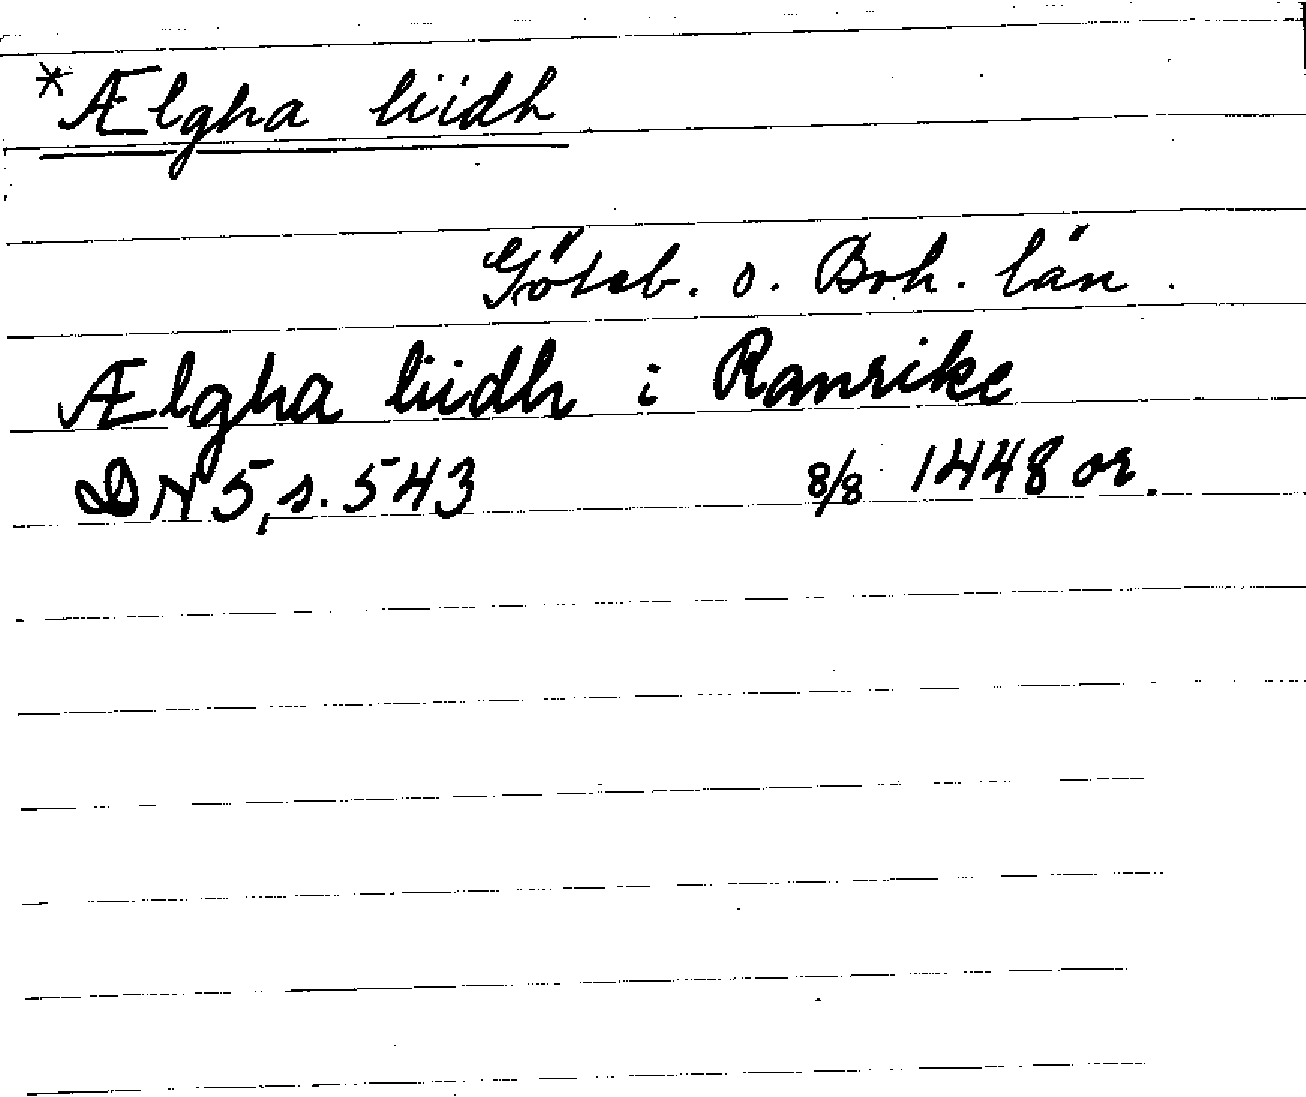 *Ælgha liidh
Göteb. o. Boh. län.
Ælgha liidh i Ranrike
DN 5, s. 543 8/8 1448 or.